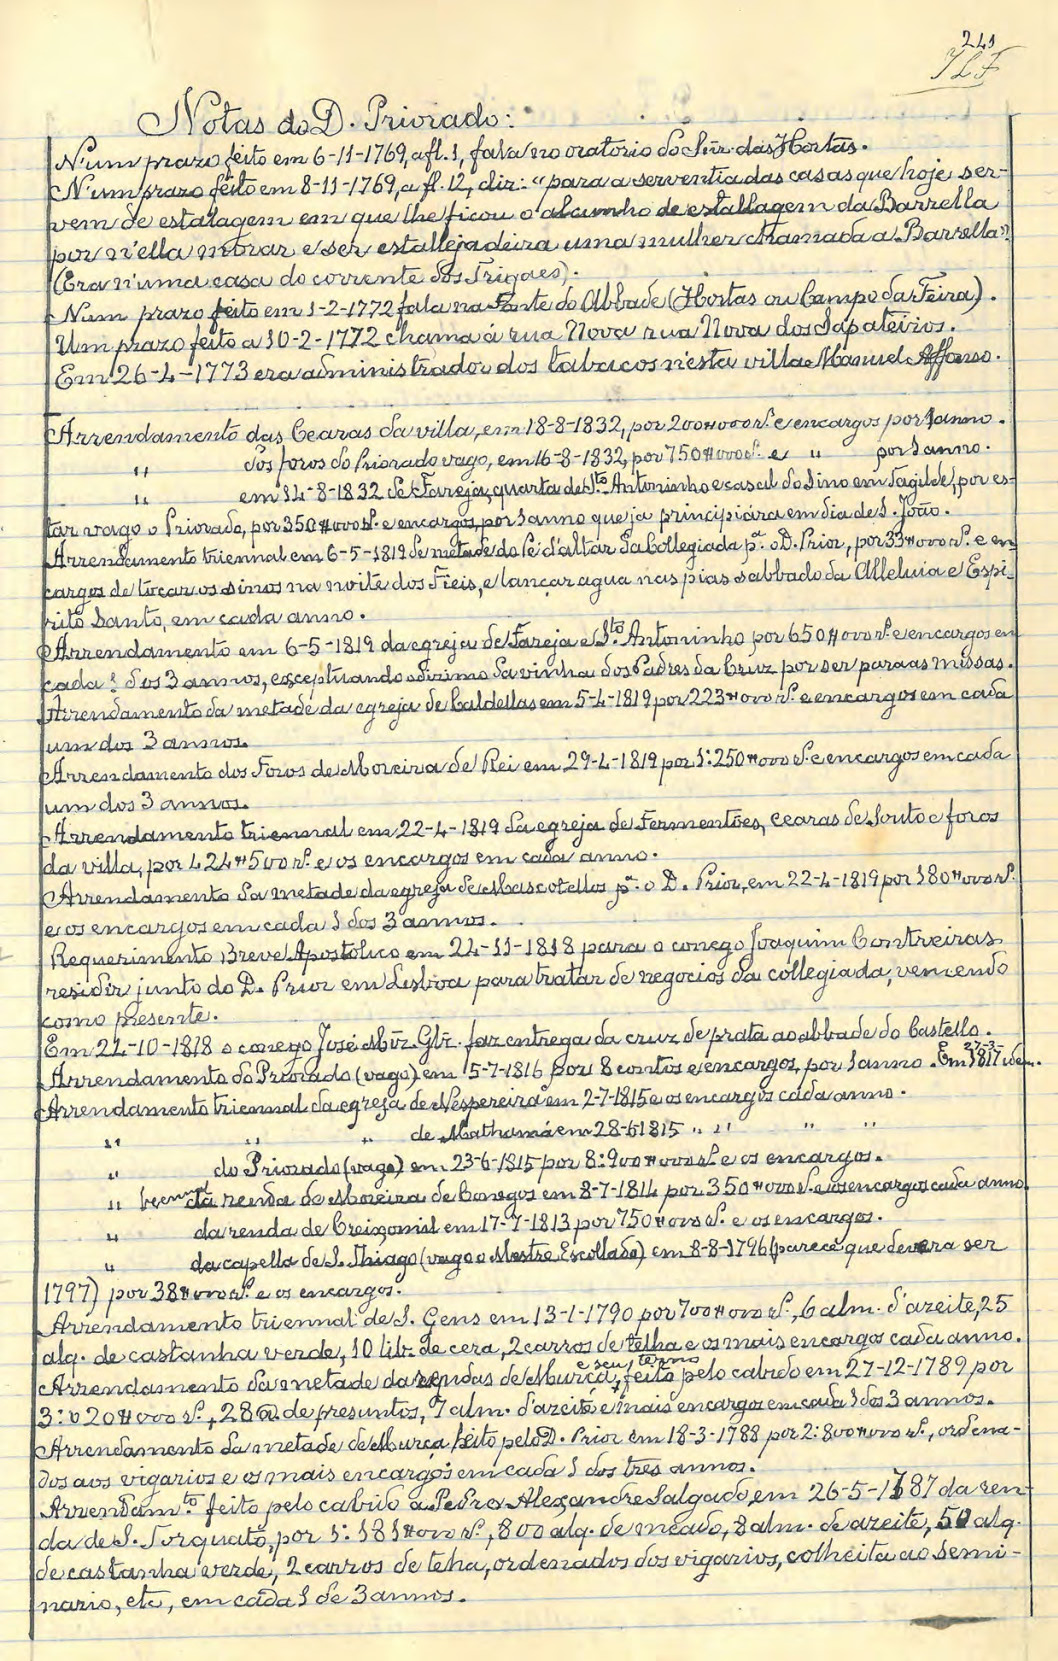 241
JLF
Notas do D. Priorado:
N'um prazo feito em 6-11-1769, a fl. 1, fala no oratorio do Snr. das Hortas.
N'um prazo feito em 8-11-1769, a fl. 12, diz: "para a serventia das casas que hoje ser-
vem de estalagem em que lhe ficou o alcunho de estallagem da Barrella
por n'ella morar e ser estallejadeira uma mulher chamada a Barrella"
(Era n'uma casa do corrente dos Trigaes).
Num prazo feito em 1-2-1772 fala na Fonte do Abbade (Hortas ou Campo da Feira).
Um prazo feito a 10-2-1772 chama á rua Nova rua Nova dos Sapateiros.
Em 26-4-1773 era administrador dos tabacos n'esta villa Manuel Affonso.
Arrendamento das Cearas da villa, em 18-8-1832, por 200#000 rs. e encargos por 1 anno.
" dos foros do Priorado vago, em 16-8-1832, por 750#000 rs. e " por 1 anno.
" em 14-8-1832 de Fareja, quarta de Sto. Antoninho e casal do Simo em Tagilde, por es-
tar vago o Priorado, por 350#000 rs. e encargos, por 1 anno que já principiára em dia de S. João.
Arrendamento triennal em 6-5-1819 de metade do Pé d'altar da Collegiada pa. o D. Prior, por 33#000 rs. e en-
cargos de tocar os sinos na noite dos Fieis, e lançar agua nas pias sabbado da Alleluia e Espi-
rito Santo, em cada anno.
Arrendamento em 6-5-1819 da egreja de Fareja e Sto. Antoninho por 650#000 rs. e encargos em
cada 1 dos 3 annos, exceptuando o dizimo da vinha dos Padres da Cruz por ser para as missas.
Arrendamento da metade da egreja de Caldellas em 5-4-1819 por 223#000 rs. e encargos em cada
um dos 3 annos.
Arrendamento dos Foros de Moreira de Rei em 29-4-1819 por 1:250#000 rs. e encargos em cada
um dos 3 annos.
Arrendamento triennal em 22-4-1819 da egreja de Fermentões, cearas de Souto e foros
da villa, por 424#500 rs. e os encargos em cada anno.
Arrendamento da metade da egreja de Mascotellos pa. o D. Prior, em 22-4-1819 por 180#000 rs.
e os encargos em cada 1 dos 3 annos.
Requerimento Breve Apostolico em 24-11-1818 para o conego Joaquim Contreiras
residir junto do D. Prior em Lisboa para tratar de negocios da collegiada, vencendo
como presente.
Em 24-10-1818 o conego José Miz. Glz. faz entrega da cruz de prata ao abbade do Castello.
Arrendamento do Priorado (vago) em 15-7-1816 por 8 contos e encargos, por 1 anno. Em 27-3-1817 idem.
Arrendamento triennal da egreja de Nespereira em 2-7-1815 e os encargos cada anno.
" " " de Mathamá em 28-6-1815 " " " "
" do Priorado (vago) em 23-6-1815 por 8:900#000 rs. e os encargos.
" triennal da renda de Moreira de Conegos em 8-7-1814 por 350#000 rs. e os encargos cada anno.
" da renda de Creixomil em 17-7-1813 por 750#000 rs. e os encargos.
" da capella de S. Thiago (vago o Mestre Escollado) em 8-8-1796 (parece que devera ser
1797) por 38#000 rs. e os encargos.
Arrendamento triennal de S. Gens em 13-1-1790 por 700#000 rs., 6 alm. d'azeite, 25
alq. de castanha verde, 10 lib. de cera, 2 carros de telha e os mais encargos cada anno.
Arrendamento da metade das rendas de Murça e seu termo, feito pelo cabido em 27-12-1789 por
3:020#000 rs., 28 @ de presuntos, 7 alm. d'azeite e mais encargos em cada 1 dos 3 annos.
Arrendamento da metade de Murça feito pelo D. Prior em 18-3-1788 por 2:800#000 rs., ordena-
dos aos vigarios e os mais encargos em cada 1 dos tres annos.
Arrendamto. feito pelo cabido a Pedro Alexandre Salgado, em 26-5-1787 da ren-
da de S. Torquato, por 1:181#000 rs., 800 alq. de meado, 8 alm. de azeite, 50 alq.
de castanha verde, 2 carros de telha, ordenados dos vigarios, colheita ao semi-
nario, etc, em cada 1 de 3 annos.